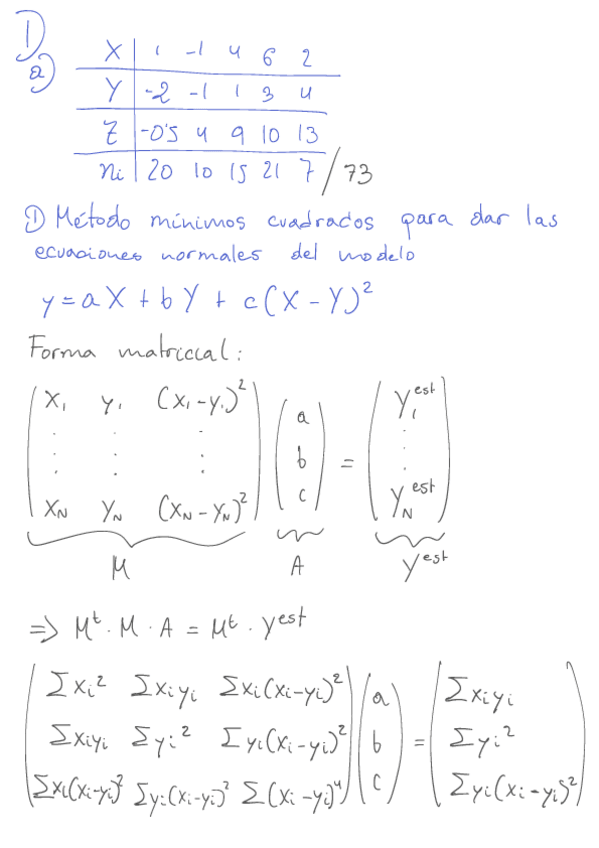 1)
a)
X | 1 -1 4 6 2
Y | -2 -1 1 3 4
Z | -0'5 4 9 10 13
ni | 20 10 15 21 7 / 73
① Método mínimos cuadrados para dar las
ecuaciones normales del modelo
y = aX + bY + c(X - Y)²
Forma matriccal:
( X₁ y₁ (x₁-y₁)² ) ( a ) = ( Y₁ᵉˢᵗ )
. . . b .
: : : :
( XN YN (XN - YN)² ) ( c ) ( YNᵉˢᵗ )
M A Yᵉˢᵗ
=> Mᵗ · M · A = Mᵗ · Yᵉˢᵗ
( Σxi² Σxiyi Σxi(xi-yi)² ) ( a ) ( Σxiyi )
( Σxiyi Σyi² Σyi(xi-yi)² ) ( b ) = ( Σyi² )
( Σxi(xi-yi)² Σyi(xi-yi)² Σ(xi-yi)⁴ ) ( c ) ( Σyi(xi-yi)² )